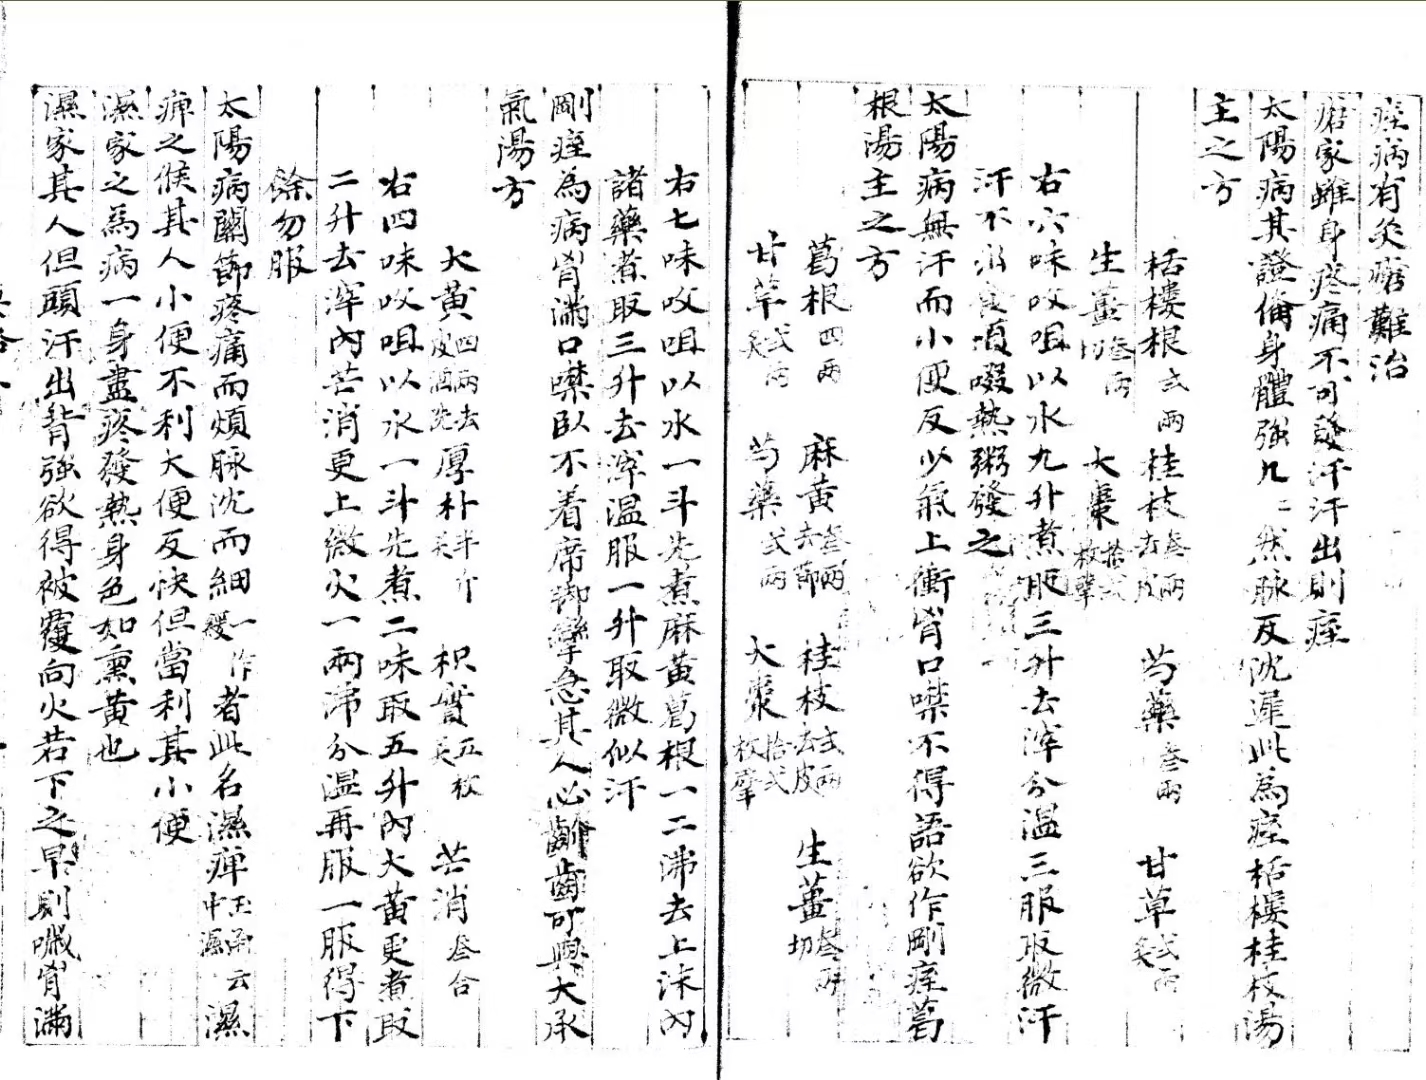 痓病有灸瘡難治
瘡家雖身疼痛不可發汗汗出則痓
太陽病其證備身體強几〻然脉反沈遲此為痓栝樓桂枝湯
主之方
栝樓根弍兩 桂枝叁兩去皮 芍藥叁兩 甘草弍兩炙
生薑叁兩切 大棗拾弍枚擘
右六味㕮咀以水九升煮取三升去滓分溫三服取微汗
汗不出食頃啜熱粥發之
太陽病無汗而小便反少氣上衝胷口噤不得語欲作剛痓葛
根湯主之方
葛根四兩 麻黄叁兩去節 桂枝弍兩去皮 生薑叁兩切
甘草弍兩炙 芍藥弍兩 大棗拾弍枚擘
右七味㕮咀以水一斗先煮麻黄葛根一二沸去上沫內
諸藥煮取三升去滓溫服一升取微似汗
剛痓為病胷滿口噤臥不着席脚攣急其人必齘齒可與大承
氣湯方
大黄四兩去皮酒洗 厚朴半斤炙 枳實五枚炙 芒消叁合
右四味㕮咀以水一斗先煮二味取五升內大黄更煮取
二升去滓內芒消更上微火一兩沸分溫再服一服得下
餘勿服
太陽病關節疼痛而煩脉沈而細一作緩者此名濕痺玉函云中濕濕
痺之候其人小便不利大便反快但當利其小便
濕家之為病一身盡疼發熱身色如熏黄也
濕家其人但頭汗出背強欲得被覆向火若下之早則噦胷滿